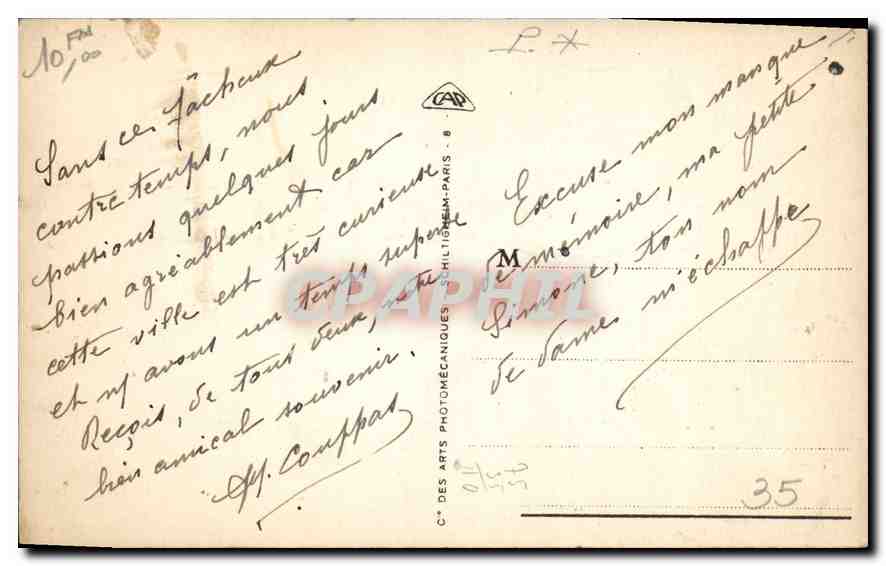 10 FM
,00
Sans ce fâcheux
contre temps, nous
passions quelques jours
bien agréablement car
cette ville est très curieuse
et ns avons un temps superbe
Reçois, de tous deux, notre
bien amical souvenir.
M. Couppas
P. X
CAP
Cie DES ARTS PHOTOMÉCANIQUES SCHILTIGHEIM-PARIS - 8
Excuse mon manque
de mémoire, ma petite
M
Simone, ton nom
de dame m'échappe
35
CPAPHIL